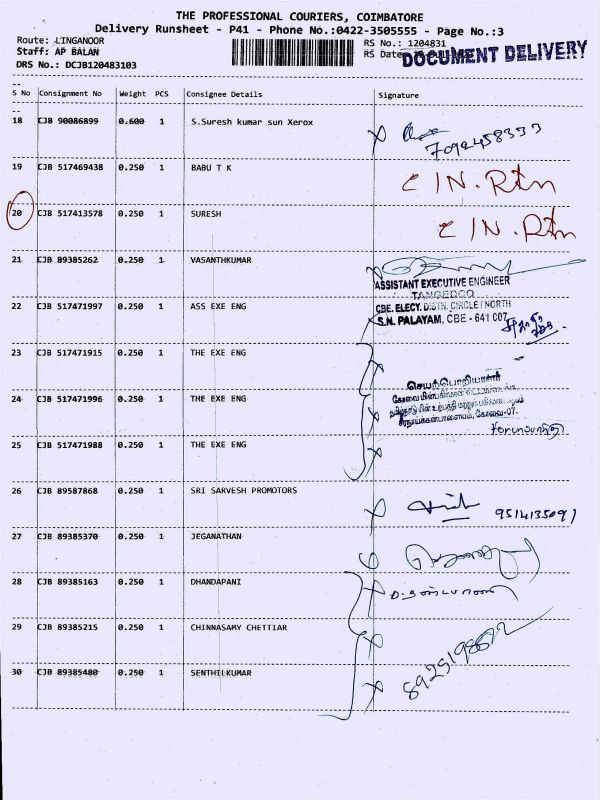 THE PROFESSIONAL COURIERS, COIMBATORE
Delivery Runsheet - P41 - Phone No.:0422-3505555 - Page No.:3
Route: LINGANOOR
RS No.: 1204831
Staff: AP BALAN
RS Date
DOCUMENT DELIVERY
DRS No.: DCJB120483103
S No Consignment No Weight PCS Consignee Details Signature
18 CJB 90086899 0.600 1 S.Suresh kumar sun Xerox
7092458333
19 CJB 517469438 0.250 1 BABU T K C/N. Rtn
20 CJB 517413578 0.250 1 SURESH C/N. Rtn
21 CJB 89385262 0.250 1 VASANTHKUMAR
ASSISTANT EXECUTIVE ENGINEER
TANGEDCO
22 CJB 517471997 0.250 1 ASS EXE ENG CBE. ELECY. DISTN. CIRCLE / NORTH
S.N. PALAYAM, CBE - 641 007
23 CJB 517471915 0.250 1 THE EXE ENG
செயற்பொறியாளர்
24 CJB 517471996 0.250 1 THE EXE ENG
25 CJB 517471988 0.250 1 THE EXE ENG
26 CJB 89587868 0.250 1 SRI SARVESH PROMOTORS
9514135091
27 CJB 89385370 0.250 1 JEGANATHAN
28 CJB 89385163 0.250 1 DHANDAPANI
29 CJB 89385215 0.250 1 CHINNASAMY CHETTIAR
30 CJB 89385480 0.250 1 SENTHILKUMAR